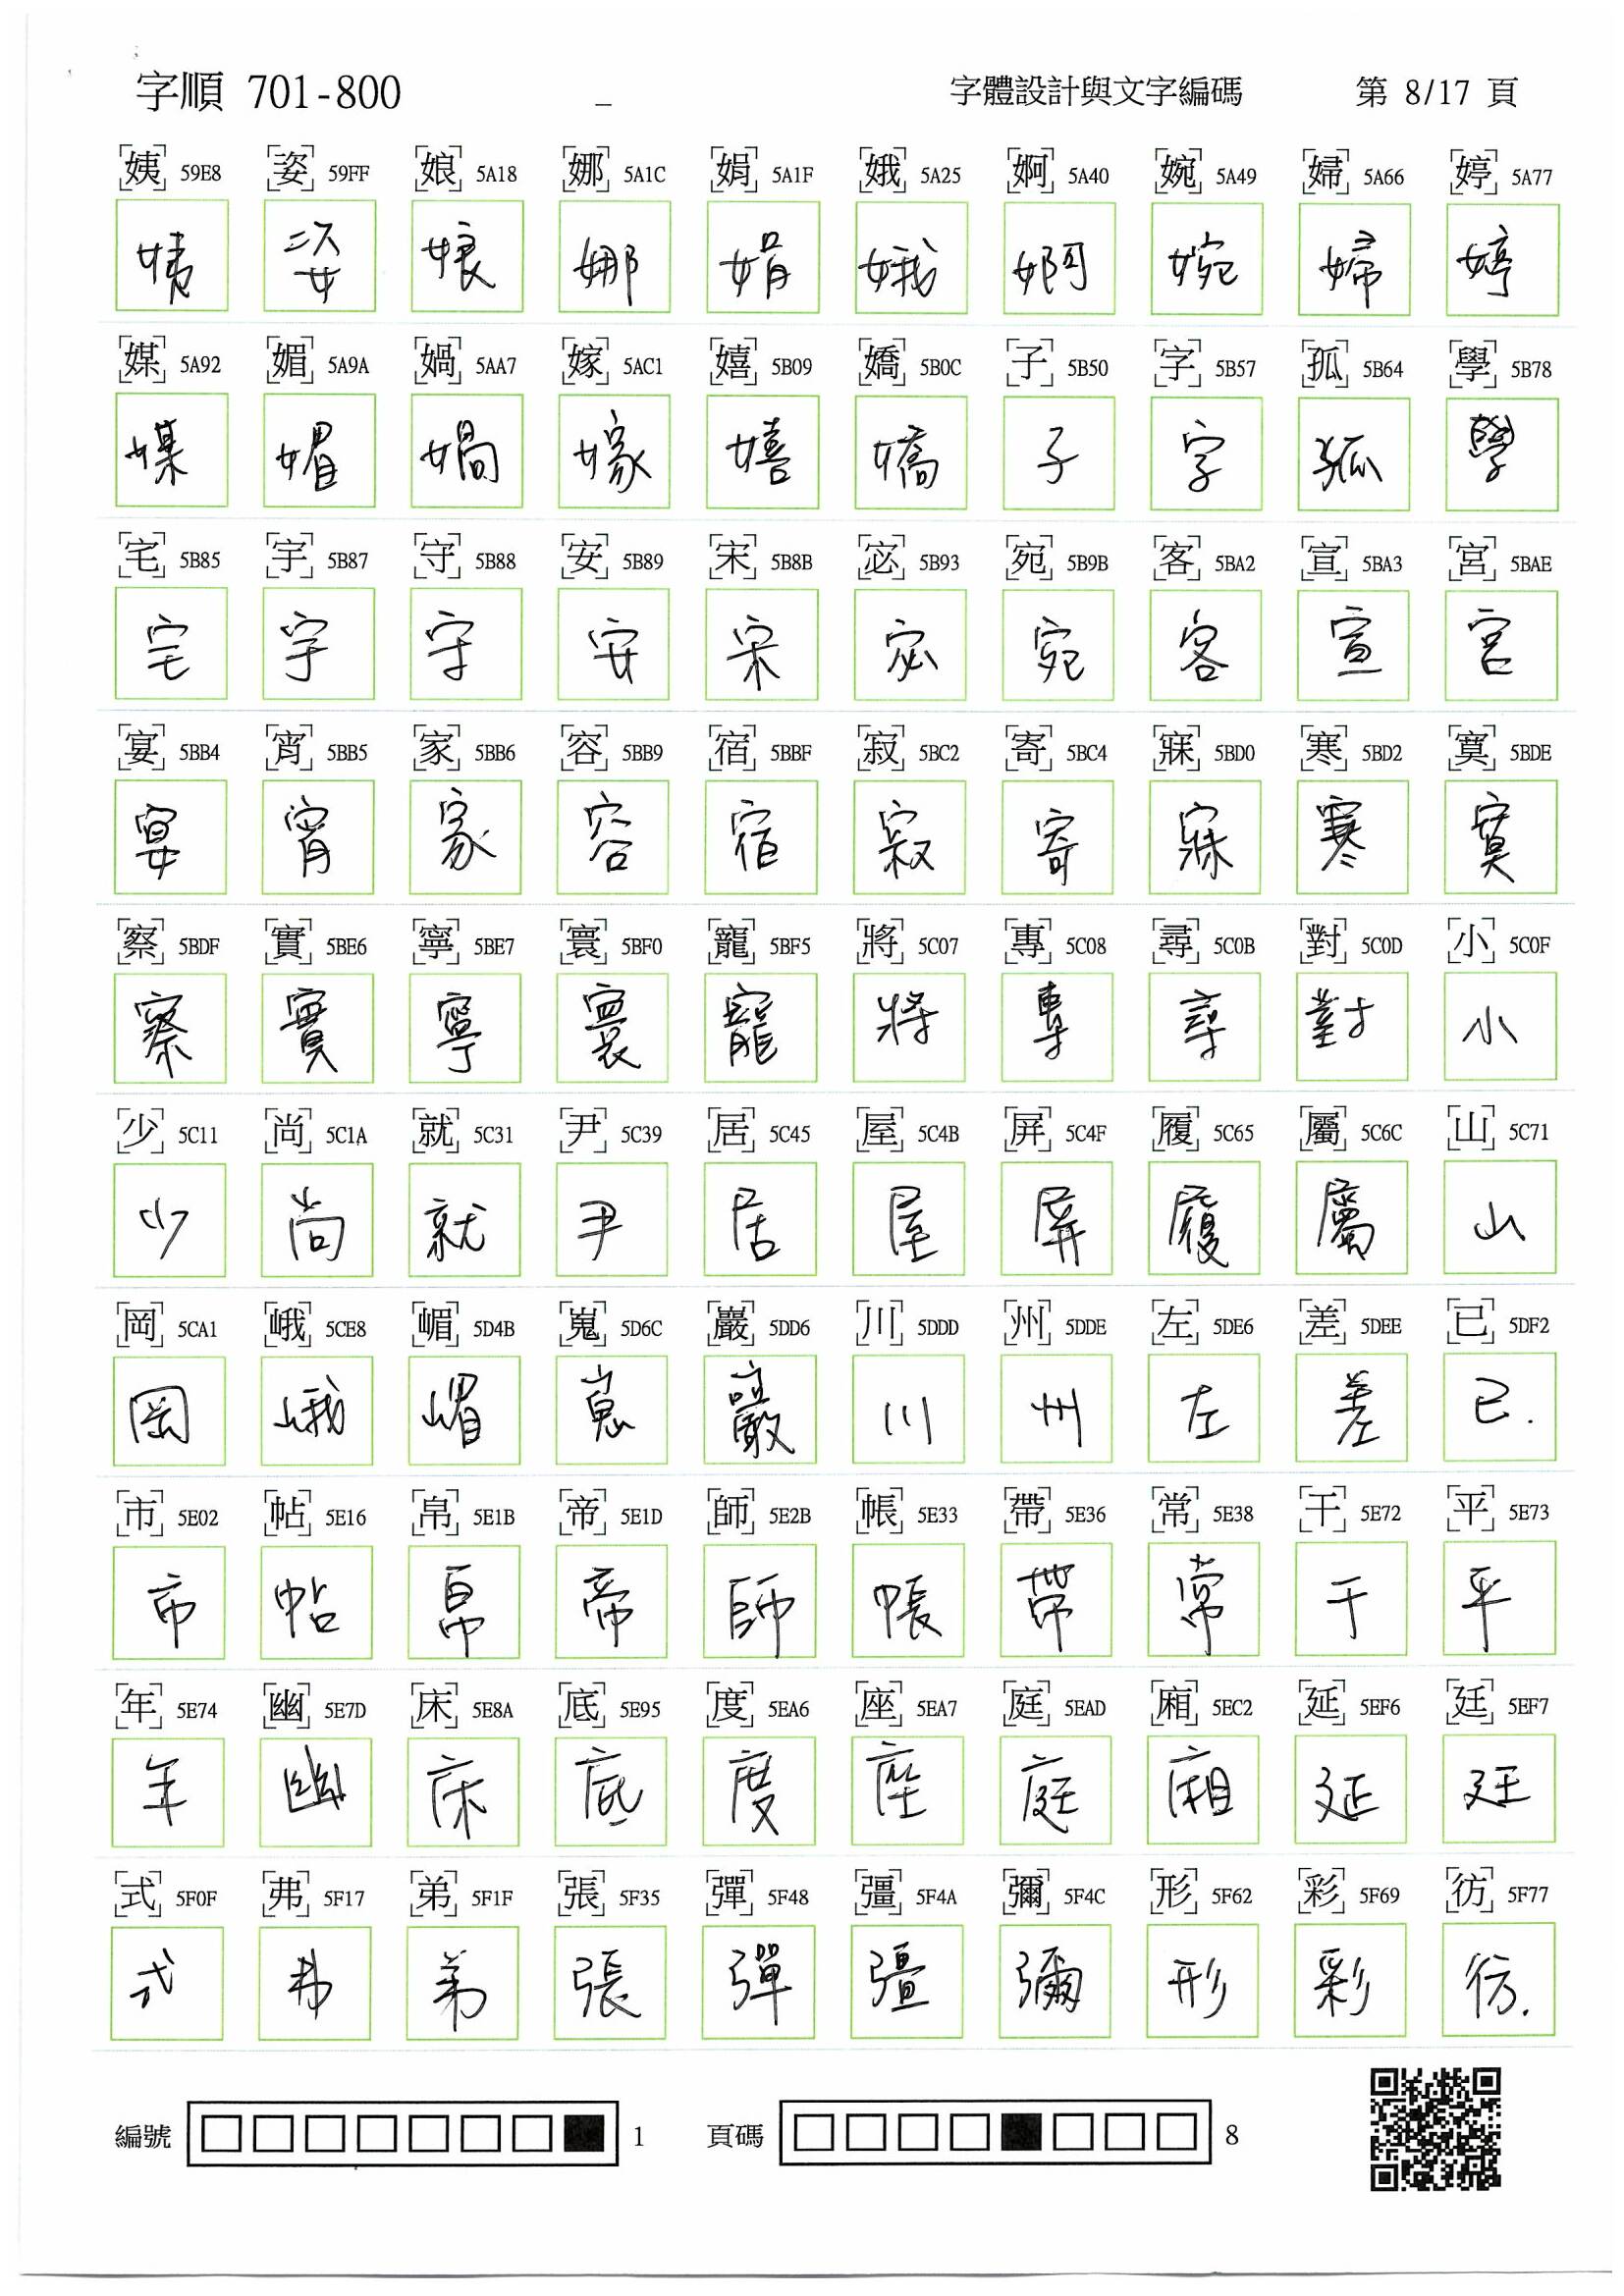 字順 701-800 _ 字體設計與文字編碼 第 8/17 頁
姨 59E8 姿 59FF 娘 5A18 娜 5A1C 娟 5A1F 娥 5A25 婀 5A40 婉 5A49 婦 5A66 婷 5A77
姨 姿 娘 娜 娟 娥 婀 婉 婦 婷
媒 5A92 媚 5A9A 媧 5AA7 嫁 5AC1 嬉 5B09 嬌 5B0C 子 5B50 字 5B57 孤 5B64 學 5B78
媒 媚 媧 嫁 嬉 嬌 子 字 孤 學
宅 5B85 宇 5B87 守 5B88 安 5B89 宋 5B8B 宓 5B93 宛 5B9B 客 5BA2 宣 5BA3 宮 5BAE
宅 宇 守 安 宋 宓 宛 客 宣 宮
宴 5BB4 宵 5BB5 家 5BB6 容 5BB9 宿 5BBF 寂 5BC2 寄 5BC4 寐 5BD0 寒 5BD2 寞 5BDE
宴 宵 家 容 宿 寂 寄 寐 寒 寞
察 5BDF 實 5BE6 寧 5BE7 寰 5BF0 寵 5BF5 將 5C07 專 5C08 尋 5C0B 對 5C0D 小 5C0F
察 實 寧 寰 寵 將 專 尋 對 小
少 5C11 尚 5C1A 就 5C31 尹 5C39 居 5C45 屋 5C4B 屏 5C4F 履 5C65 屬 5C6C 山 5C71
少 尚 就 尹 居 屋 屏 履 屬 山
岡 5CA1 峨 5CE8 嵋 5D4B 嵬 5D6C 巖 5DD6 川 5DDD 州 5DDE 左 5DE6 差 5DEE 已 5DF2
岡 峨 嵋 嵬 巖 川 州 左 差 已.
市 5E02 帖 5E16 帛 5E1B 帝 5E1D 師 5E2B 帳 5E33 帶 5E36 常 5E38 干 5E72 平 5E73
市 帖 帛 帝 師 帳 帶 常 干 平
年 5E74 幽 5E7D 床 5E8A 底 5E95 度 5EA6 座 5EA7 庭 5EAD 廂 5EC2 延 5EF6 廷 5EF7
年 幽 床 底 度 座 庭 廂 延 廷
式 5F0F 弗 5F17 弟 5F1F 張 5F35 彈 5F48 彊 5F4A 彌 5F4C 形 5F62 彩 5F69 彷 5F77
式 弗 弟 張 彈 彊 彌 形 彩 彷.
編號 1 頁碼 8